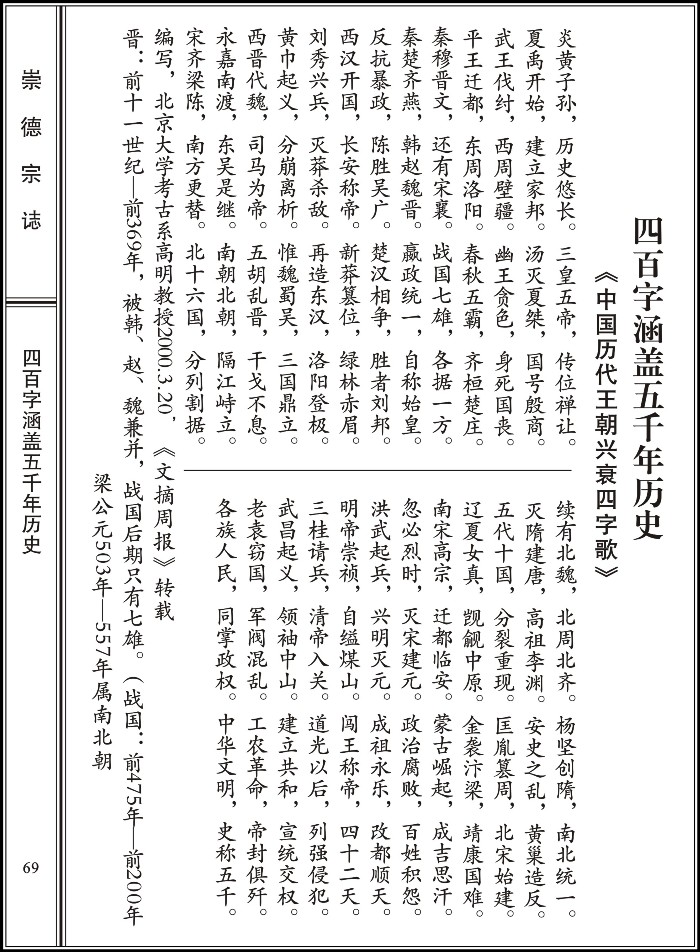 四百字涵盖五千年历史
《中国历代王朝兴衰四字歌》
炎黄子孙，历史悠长。三皇五帝，传位禅让。
夏禹开始，建立家邦。汤灭夏桀，国号殷商。
武王伐纣，西周壁疆。幽王贪色，身死国丧。
平王迁都，东周洛阳。春秋五霸，齐桓楚庄。
秦穆晋文，还有宋襄。战国七雄，各据一方。
秦楚齐燕，韩赵魏晋。嬴政统一，自称始皇。
反抗暴政，陈胜吴广。楚汉相争，胜者刘邦。
西汉开国，长安称帝。新莽篡位，绿林赤眉。
刘秀兴兵，灭莽杀敌。再造东汉，洛阳登极。
黄巾起义，分崩离析。惟魏蜀吴，三国鼎立。
西晋代魏，司马为帝。五胡乱晋，干戈不息。
永嘉南渡，东吴是继。南朝北朝，隔江峙立。
宋齐梁陈，南方更替。北十六国，分列割据。
续有北魏，北周北齐。杨坚创隋，南北统一。
灭隋建唐，高祖李渊。安史之乱，黄巢造反。
五代十国，分裂重现。匡胤篡周，北宋始建。
辽夏女真，觊觎中原。金袭汴梁，靖康国难。
南宋高宗，迁都临安。蒙古崛起，成吉思汗。
忽必烈时，灭宋建元。政治腐败，百姓积怨。
洪武起兵，兴明灭元。成祖永乐，改都顺天。
明帝崇祯，自缢煤山。闯王称帝，四十二天。
三桂请兵，清帝入关。道光以后，列强侵犯。
武昌起义，领袖中山。建立共和，宣统交权。
老袁窃国，军阀混乱。工农革命，帝封俱歼。
各族人民，同掌政权。中华文明，史称五千。
编写，北京大学考古系高明教授2000.3.20，《文摘周报》转载
晋：前十一世纪—前369年，被韩、赵、魏兼并，战国后期只有七雄。（战国：前475年—前200年
梁公元503年—557年属南北朝
崇德宗誌
四百字涵盖五千年历史
69